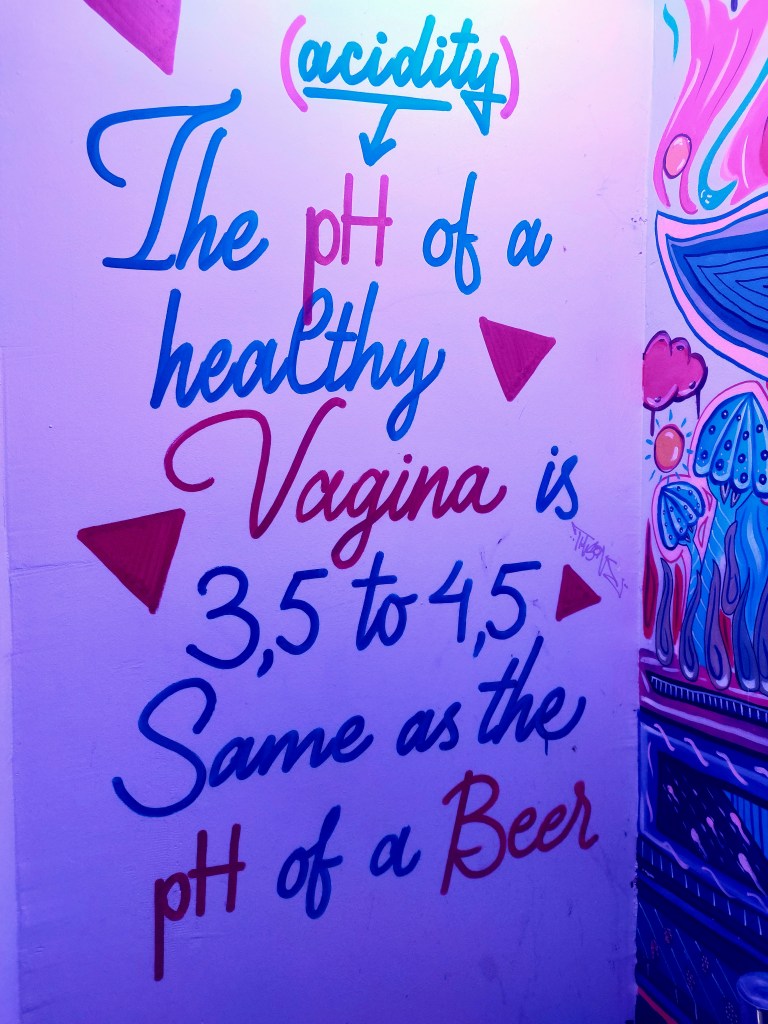 (acidity)
The pH of a
healthy
Vagina is
3,5 to 4,5
Same as the
pH of a Beer